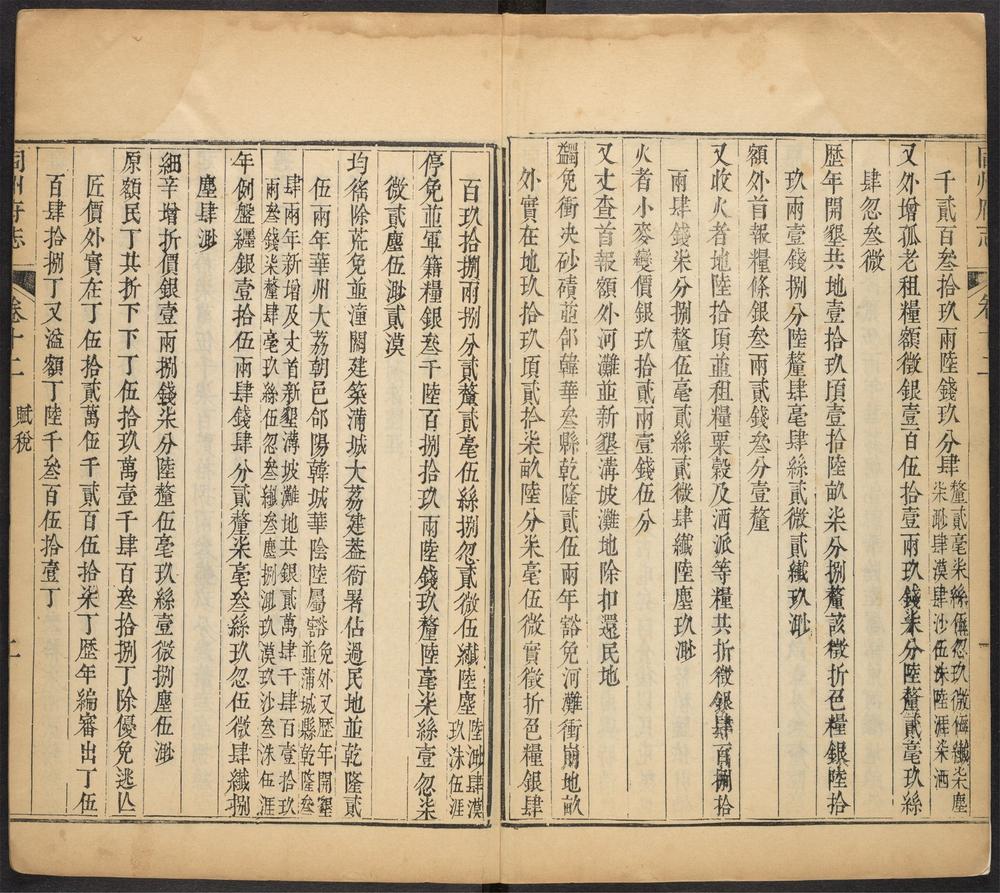 千貳百叁拾玖兩陸錢玖分肆釐貳毫柒絲伍忽玖微伍纖柒塵
柒渺肆漠肆沙伍洙陸涯柒洒
又外增孤老租糧額徵銀壹百伍拾壹兩玖錢柒分陸釐貳毫玖絲
肆忽叁微
歷年開墾共地壹拾玖頃壹拾陸畝柒分捌釐該徵折色糧銀陸拾
玖兩壹錢捌分陸釐肆毫肆絲貳微貳纖玖渺
額外首報糧條銀叁兩貳錢叁分壹釐
又收火者地陸拾頃並租糧粟穀及洒派等糧共折徵銀肆百捌拾
兩肆錢柒分捌釐伍毫貳絲貳微肆纖陸塵玖渺
火者小麥變價銀玖拾貳兩壹錢伍分
又丈查首報額外河灘並新墾溝坡灘地除扣還民地
蠲免衝决砂磧並郃韓華叁縣乾隆貳伍兩年豁免河灘衝崩地畝
外實在地玖拾玖頃貳拾柒畝陸分柒毫伍微實徵折色糧銀肆
百玖拾捌兩捌分貳釐貳毫伍絲捌忽貳微伍纖陸塵陸渺肆漠
玖洙伍涯
停免並軍籍糧銀叁千陸百捌拾玖兩陸錢玖釐陸毫柒絲壹忽柒
微貳塵伍渺貳漠
均徭除荒免並潼關建築蒲城大荔建葢衙署佔過民地並乾隆貳
伍兩年華州大荔朝邑郃陽韓城華陰陸屬豁免外又歷年開墾
並蒲城縣乾隆叁
肆兩年新增及丈首新墾溝坡灘地共銀貳萬肆千肆百壹拾玖
兩叁錢柒釐肆毫玖絲伍忽叁纖叁塵捌渺玖漠玖沙叁洙伍涯
年例盤纏銀壹拾伍兩肆錢肆分貳釐柒毫叁絲玖忽伍微肆纖捌
塵肆渺
細辛增折價銀壹兩捌錢柒分陸釐伍毫玖絲壹微捌塵伍渺
原額民丁共折下下丁伍拾玖萬壹千肆百叁拾捌丁除優免逃亾
匠價外實在丁伍拾貳萬伍千貳百伍拾柒丁歷年編審出丁伍
百肆拾捌丁又溢額丁陸千叁百伍拾壹丁
同州府志
卷十二
賦稅
二